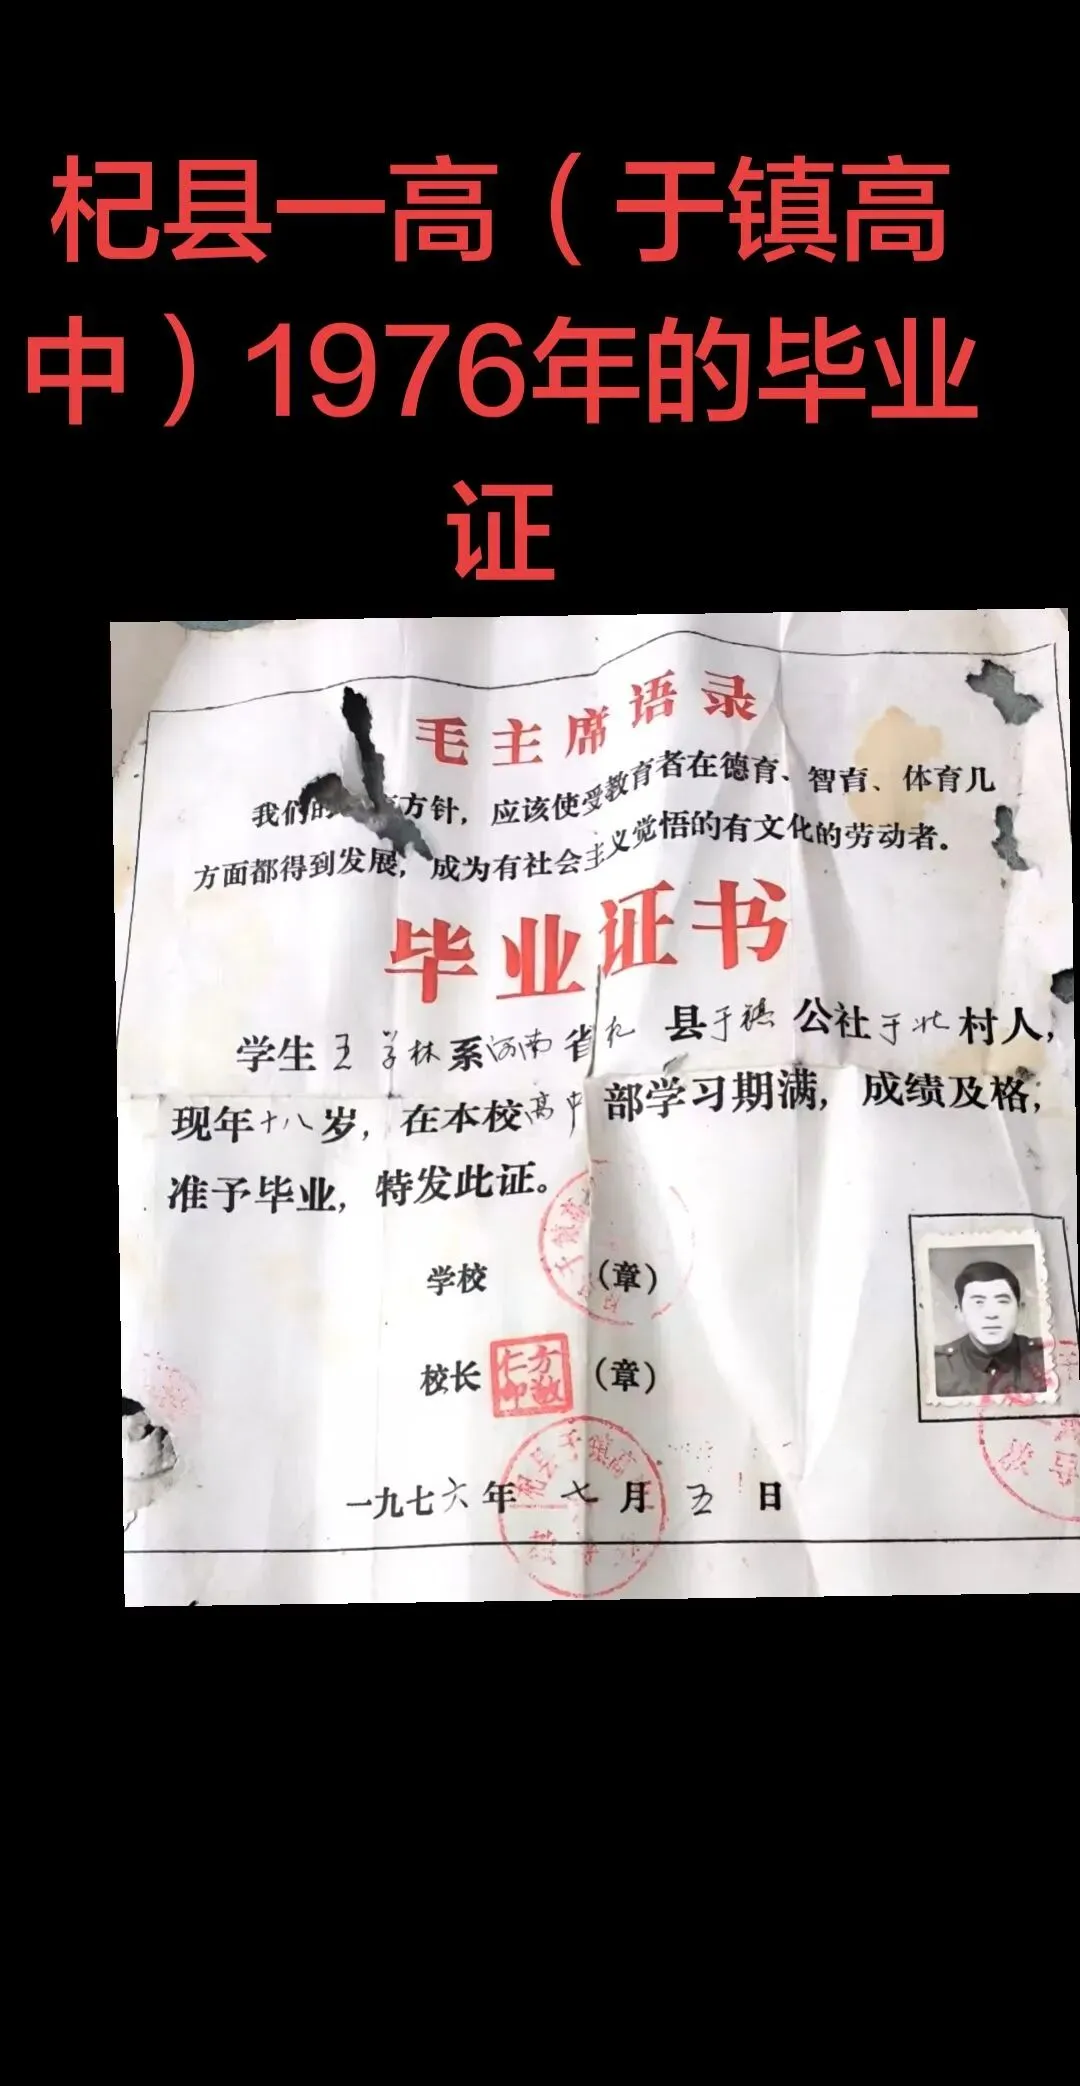 杞县一高（于镇高
中）1976年的毕业
证
毛主席语录
我们的方针，应该使受教育者在德育、智育、体育几
方面都得到发展，成为有社会主义觉悟的有文化的劳动者。
毕业证书
学生王学林系河南省杞县于镇公社于北村人，
现年十八岁，在本校高中部学习期满，成绩及格，
准予毕业，特发此证。
学校（章）
校长（章）
方敬仁印
杞县于镇高
一九七六年七月五日